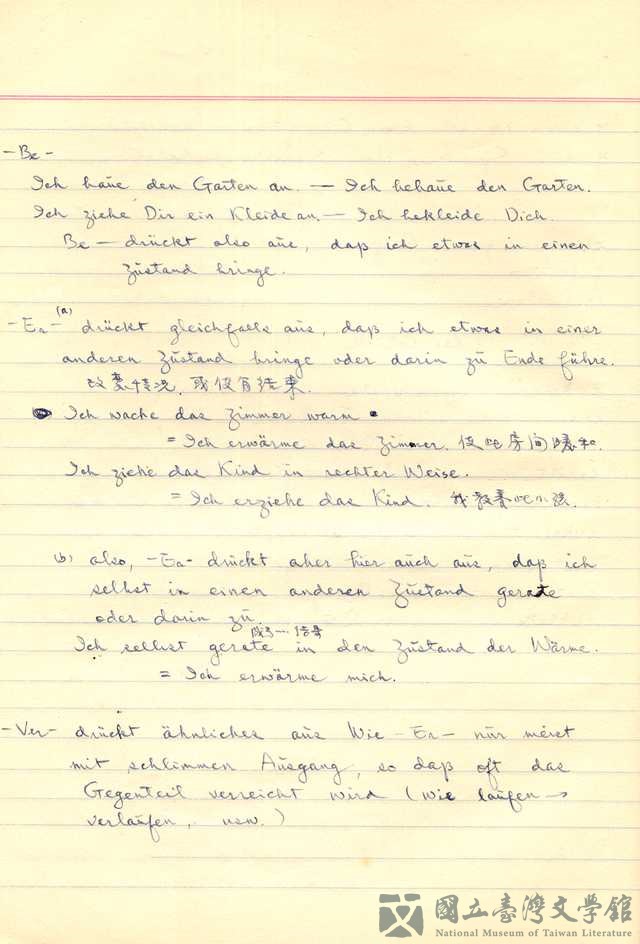 -Be-
Ich haue den Garten an. — Ich behaue den Garten.
Ich ziehe Dir ein Kleide an. — Ich bekleide Dich.
Be — drückt also aus, daß ich etwas in einen
Zustand bringe.
-Er- (a) drückt gleichfalls aus, daß ich etwas in einer
anderen Zustand bringe oder darin zu Ende führe.
改變情況, 或使有結束.
Ich mache das Zimmer warm
= Ich erwärme das Zimmer. 使此房间暖和.
Ich ziehe das Kind in rechter Weise.
= Ich erziehe das Kind. 我教養此小孩.
(b) also, -Er- drückt aber hier auch aus, daß ich
selbst in einen anderen Zustand gerate
oder darin zu
成了…结果
Ich selbst gerate in den Zustand der Wärme.
= Ich erwärme mich.
-Ver- drückt ähnliches aus Wie -Er- nur meist
mit schlimmen Ausgang, so daß oft das
Gegenteil erreicht wird (wie laufen →
verlaufen, usw.)
國立臺灣文學館
National Museum of Taiwan Literature